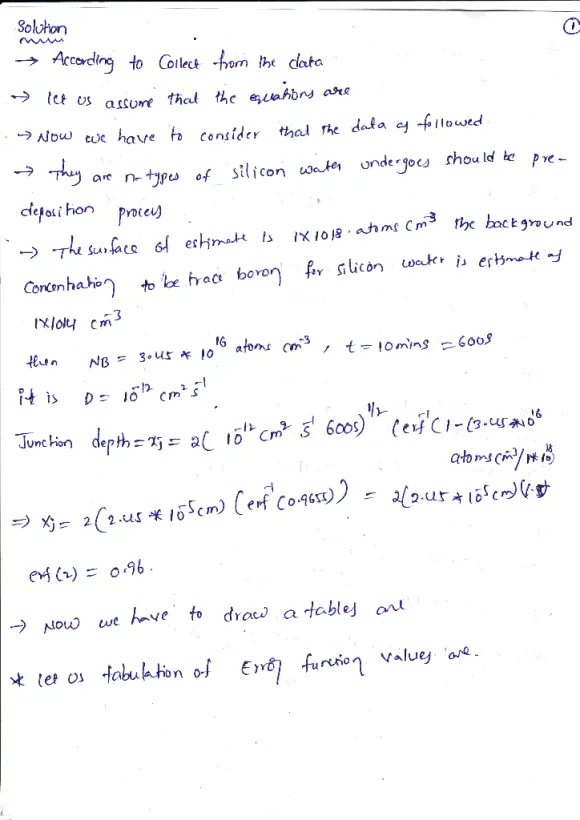 Solution
1
→ According to Collect from the data
→ let us assume that the equations are
→ Now we have to consider that the data as followed
→ They are n-types of silicon water undergoes should be pre-
deposition process
→ The surface of estimate is 1×1018 atoms cm⁻³ the background
Concentration to be trace boron for silicon water is estimate of
1×1014 cm⁻³
then NB = 3.45 * 10¹⁶ atoms cm⁻³ , t = 10mins = 600s
it is D = 10⁻¹² cm² s⁻¹
Junction depth = xj = 2( 10⁻¹² cm² s⁻¹ 600s)^1/2 (erf⁻¹(1-(3.45*10¹⁶
atoms cm⁻³/1*10¹⁸)
⇒ Xj = 2(2.45 * 10⁻⁵cm) (erf⁻¹(0.9655)) = 2(2.45 * 10⁻⁵cm)(1.5)
erf(z) = 0.96.
→ Now we have to draw a tables are
* let us tabulation of Error function values are.